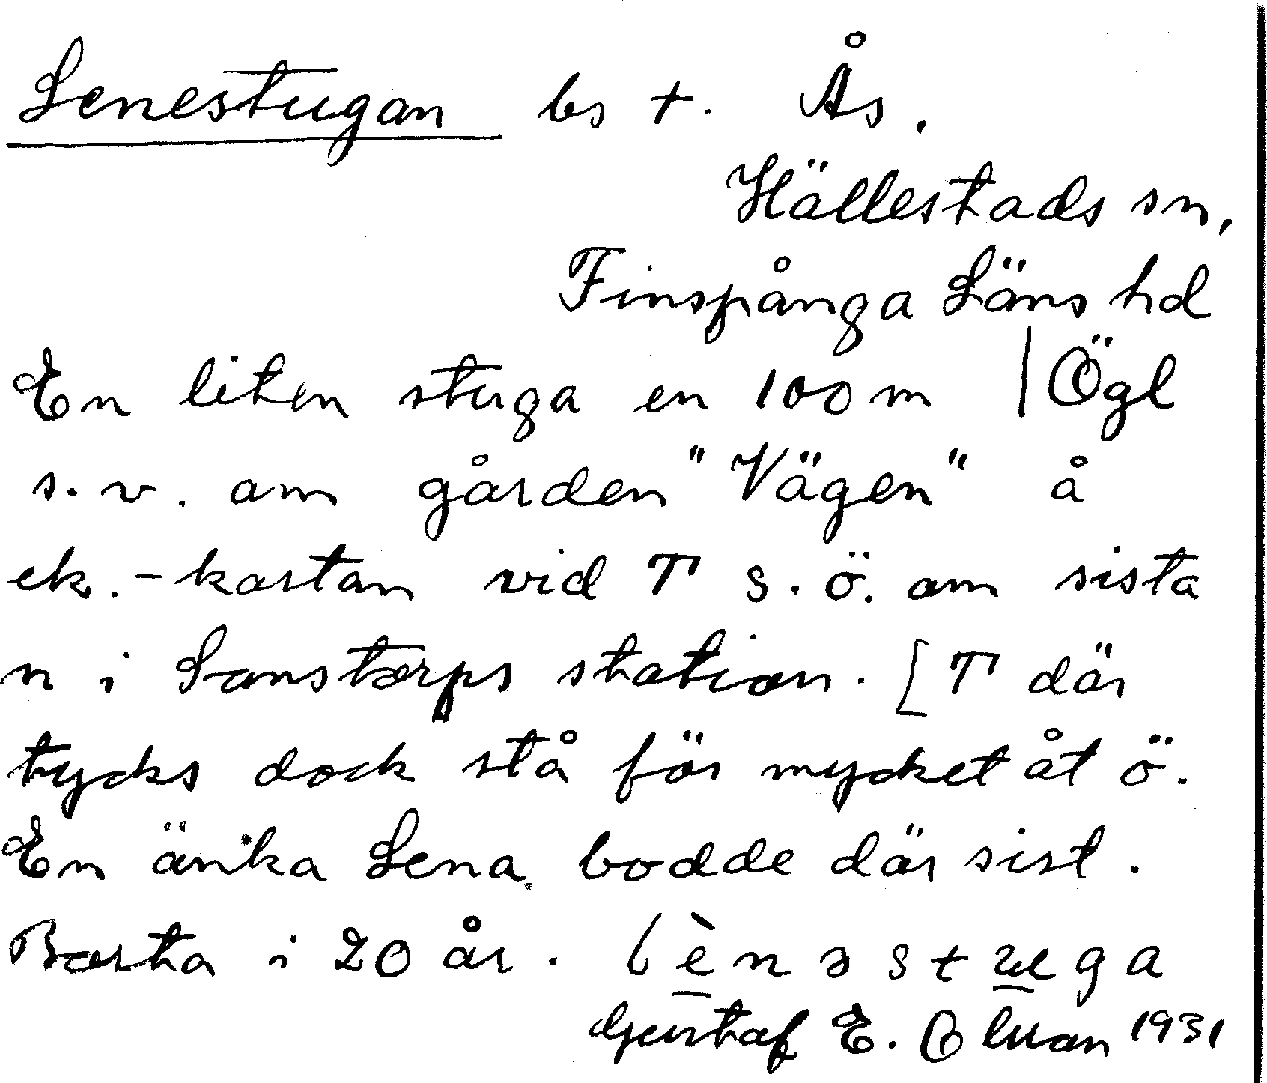 Lenestugan bs t. Ås.
Hällestads sn,
Finspånga Läns hd
En liten stuga en 100 m | Ögl
s.v. om gården "Vägen" å
ek.-kartan vid T s.ö. om sista
n i Sonstorps station. [T där
tycks dock stå för mycket åt ö.
En änka Lena bodde där sist.
Borta i 20 år. lènəstuga
Gustaf E. 1931